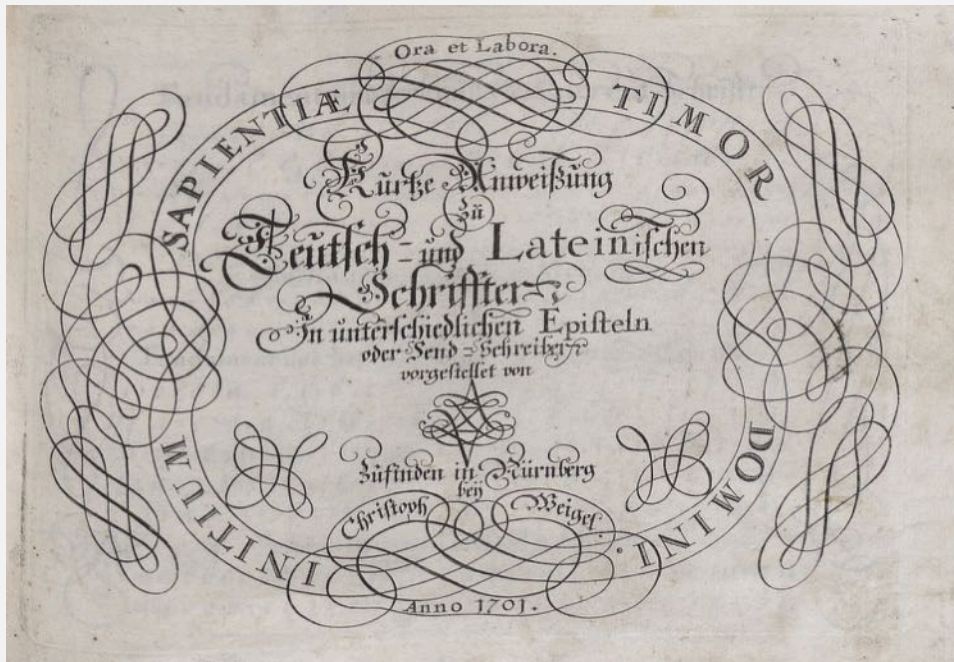 Ora et Labora.
INITIUM SAPIENTIÆ TIMOR DOMINI.
Kurtze Anweißung
zu
Teutsch- und Lateinischen
Schrifften
In unterschiedlichen Episteln
oder Send-Schreiben
vorgestellet von
Zufinden in Nürnberg
bey
Christoph Weigel.
Anno 1701.